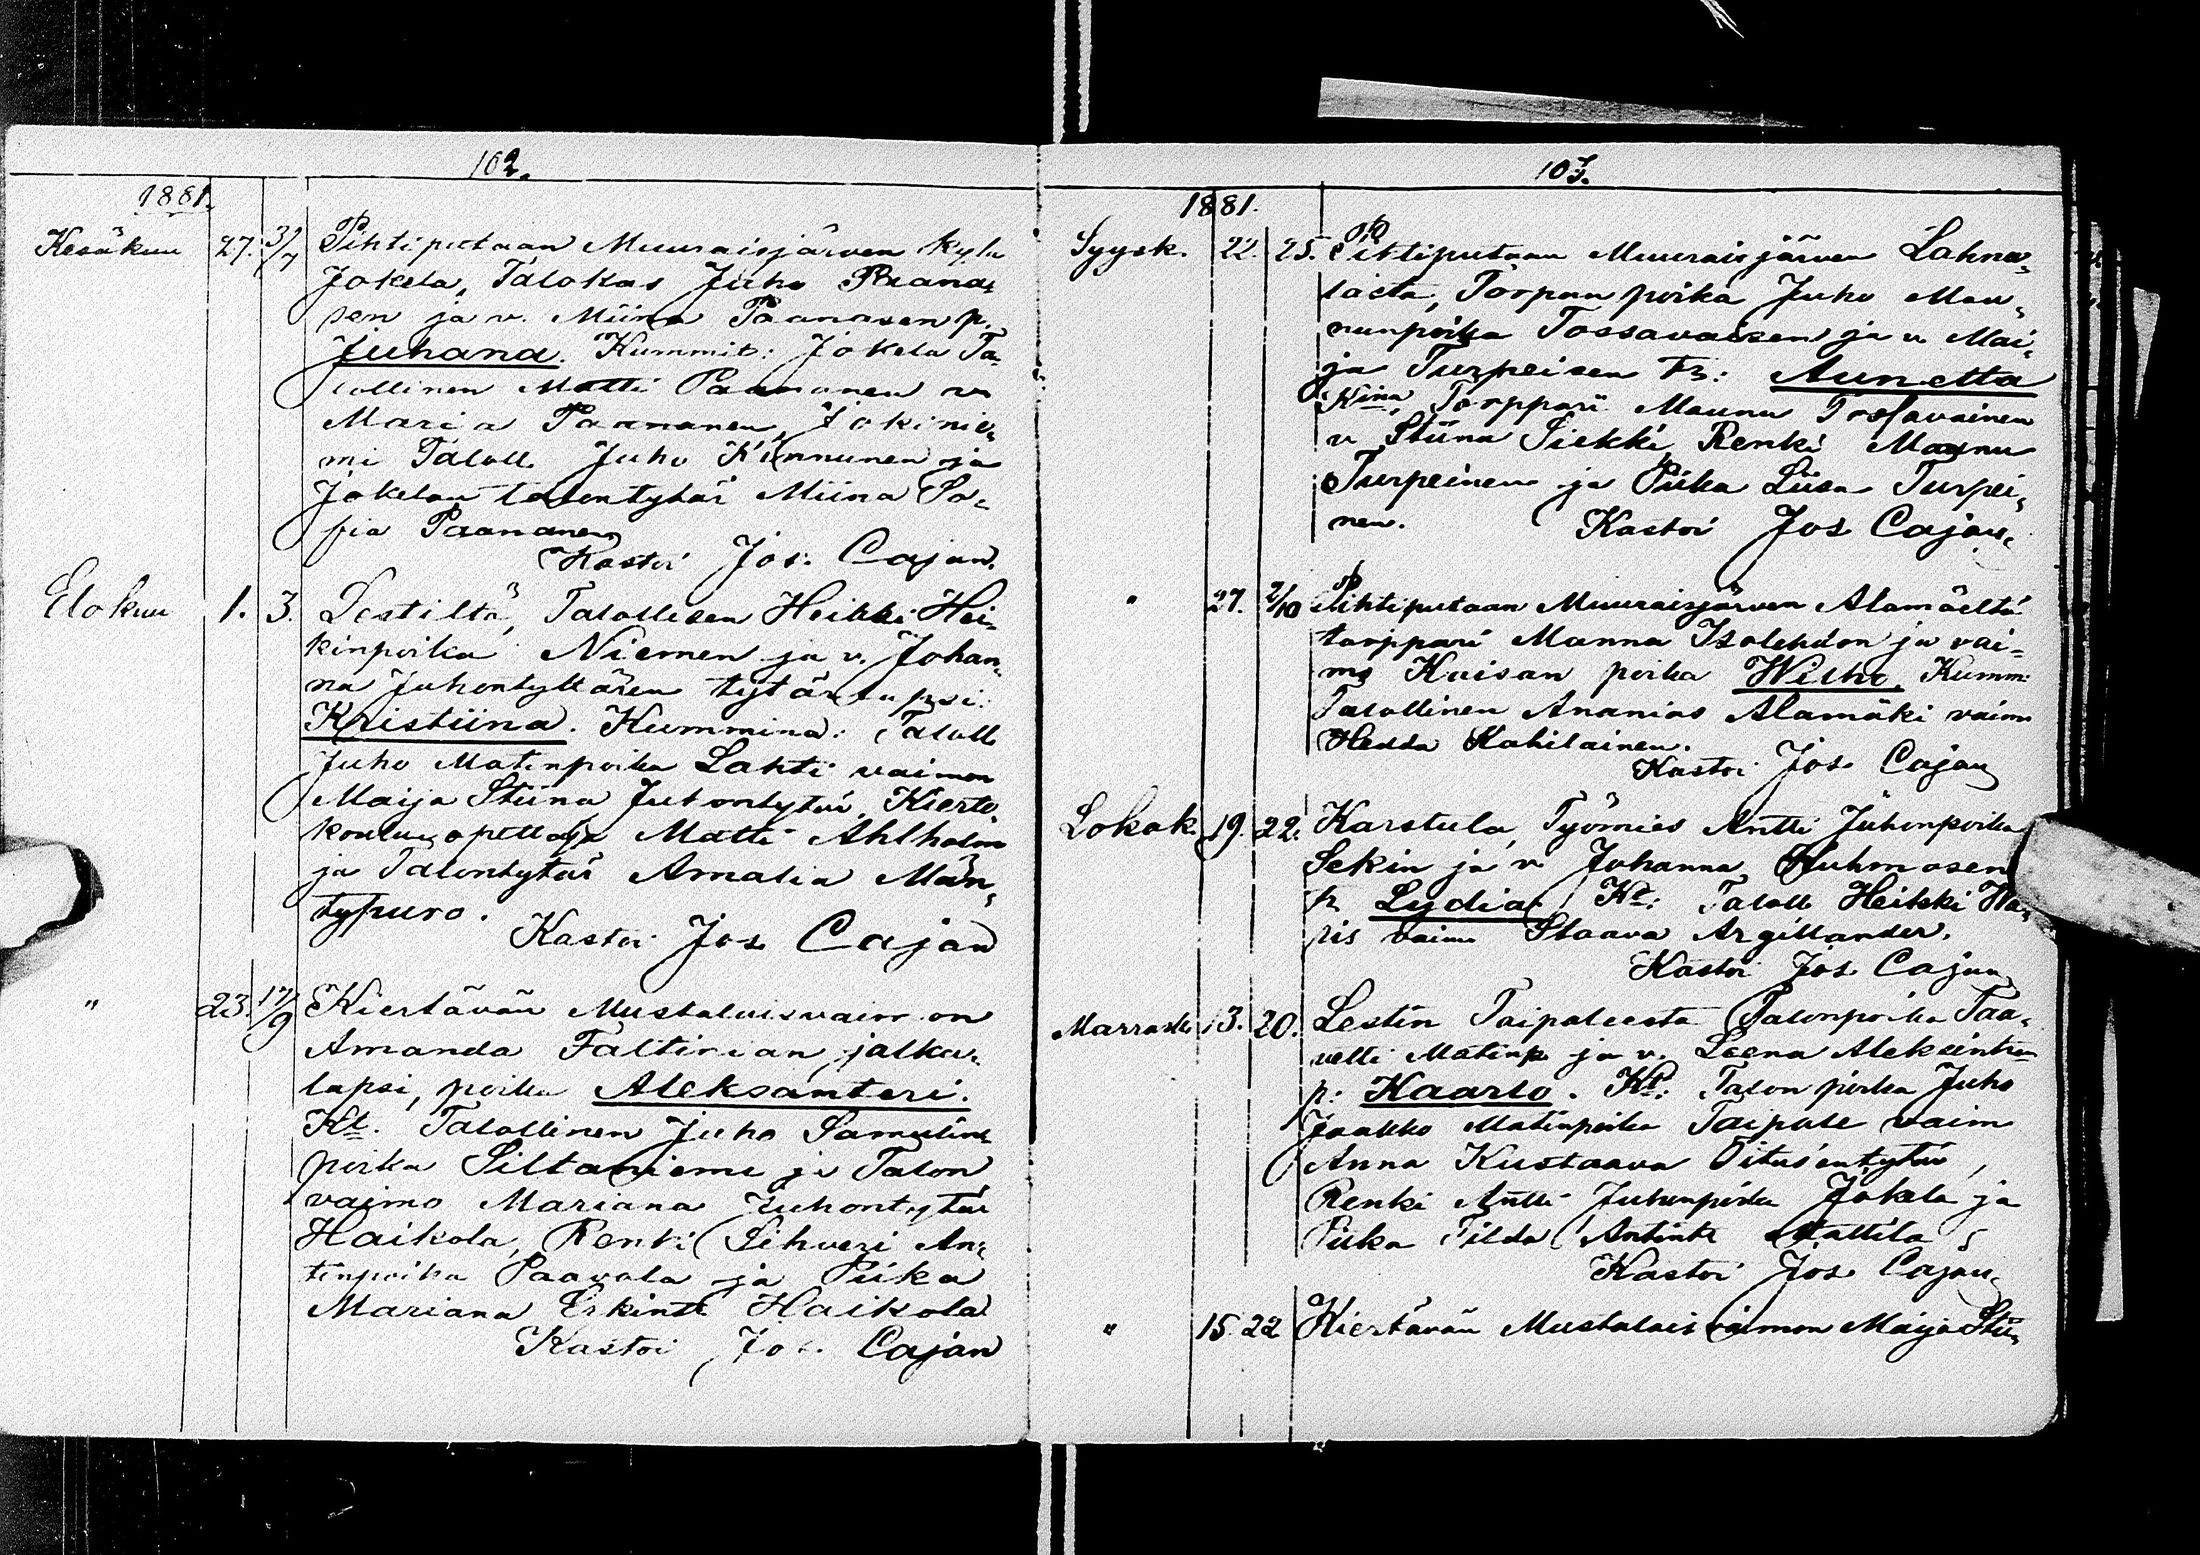 102.
1881.
Kesäkuu 27. 3/7 Pihtiputaan Muuraisjärven kylä
Jokela, Talokas Juho Paana-
sen ja v. Miina Paanasen p.
Juhana. Kummit: Jokela Ta-
lollinen Matti Paananen v.
Maria Paananen, Jokinie-
mi Taloll. Juho Kinnunen ja
Jokelan talontytär Miina So-
fia Paananen
Kastoi Jos. Cajan.
Elokuu 1. 3. Lestiltä, Talollisen Heikki Hei-
kinpoika Niemen ja v. Johan-
na Juhontyttären tytärlapsi
Kristiina. Kummina: Taloll.
Juho Matinpoika Lahti vaimon
Maija Stiina Juhontytär, Kierto-
koulun opettaja Matti Ahlholm
ja Talontytär Amalia Män-
typuro.
Kastoi Jos. Cajan
" 23. 17/9 Kiertävän Mustalaisvaimon
Amanda Faltinian, jalka-
lapsi, poika Aleksanteri.
Kt. Talollinen Juho Samulin-
poika Siltaniemi ja Talon
vaimo Mariana Juhontytär
Haikola, Renki Sihveri An-
tinpoika Paavola ja Piika
Mariana Erkint. Haikola
Kastoi Jos. Cajan
103.
1881.
Syysk. 22. 25. Pihtiputaan Muuraisjärven Lahna-
lasta, Torpan poika Juho Mau-
nunpoika Tossavaisen ja v. Mai-
ja Turpeisen tr: Aunetta
Kina, Torppari Maunu Tossavainen
v Stiina Piekki Renki Maunu
Turpeinen ja Piika Liisa Turpei-
nen. Kastoi Jos Cajan.
" 27. 2/10 Pihtiputaan Muuraisjärven Alamäeltä
torppari Manna Isolehdon ja vai-
mo Kaisan poika Wilho. Kumm:
Talollinen Ananias Alamäki vaimo
Hedda Kahilainen.
Kastoi Jos. Cajan
Lokak. 19. 22. Karstula, Työmies Antti Juhonpoika
Sekin ja v Johanna Huhmosen
tr. Lydia Kt: Taloll Heikki Ha-
pis vaimo Staava Argillander.
Kastoi Jos. Cajan
Marrask. 13. 20. Lestin Taipaleesta Talonpoika Taa-
vetti Matinp. ja v. Leena Aleksintr
p: Kaarlo. Kt: Talon poika Juho
Jaakko Matinpoika Taipale vaim
Anna Kustaava Oitus'entytär,
Renki Antti Juhonpoika Jokela ja
Piika Tilda Antint. Mattila
Kastoi Jos. Cajan
" 15. 22 Kiertävän Mustalaisvaimon Maija Stii-